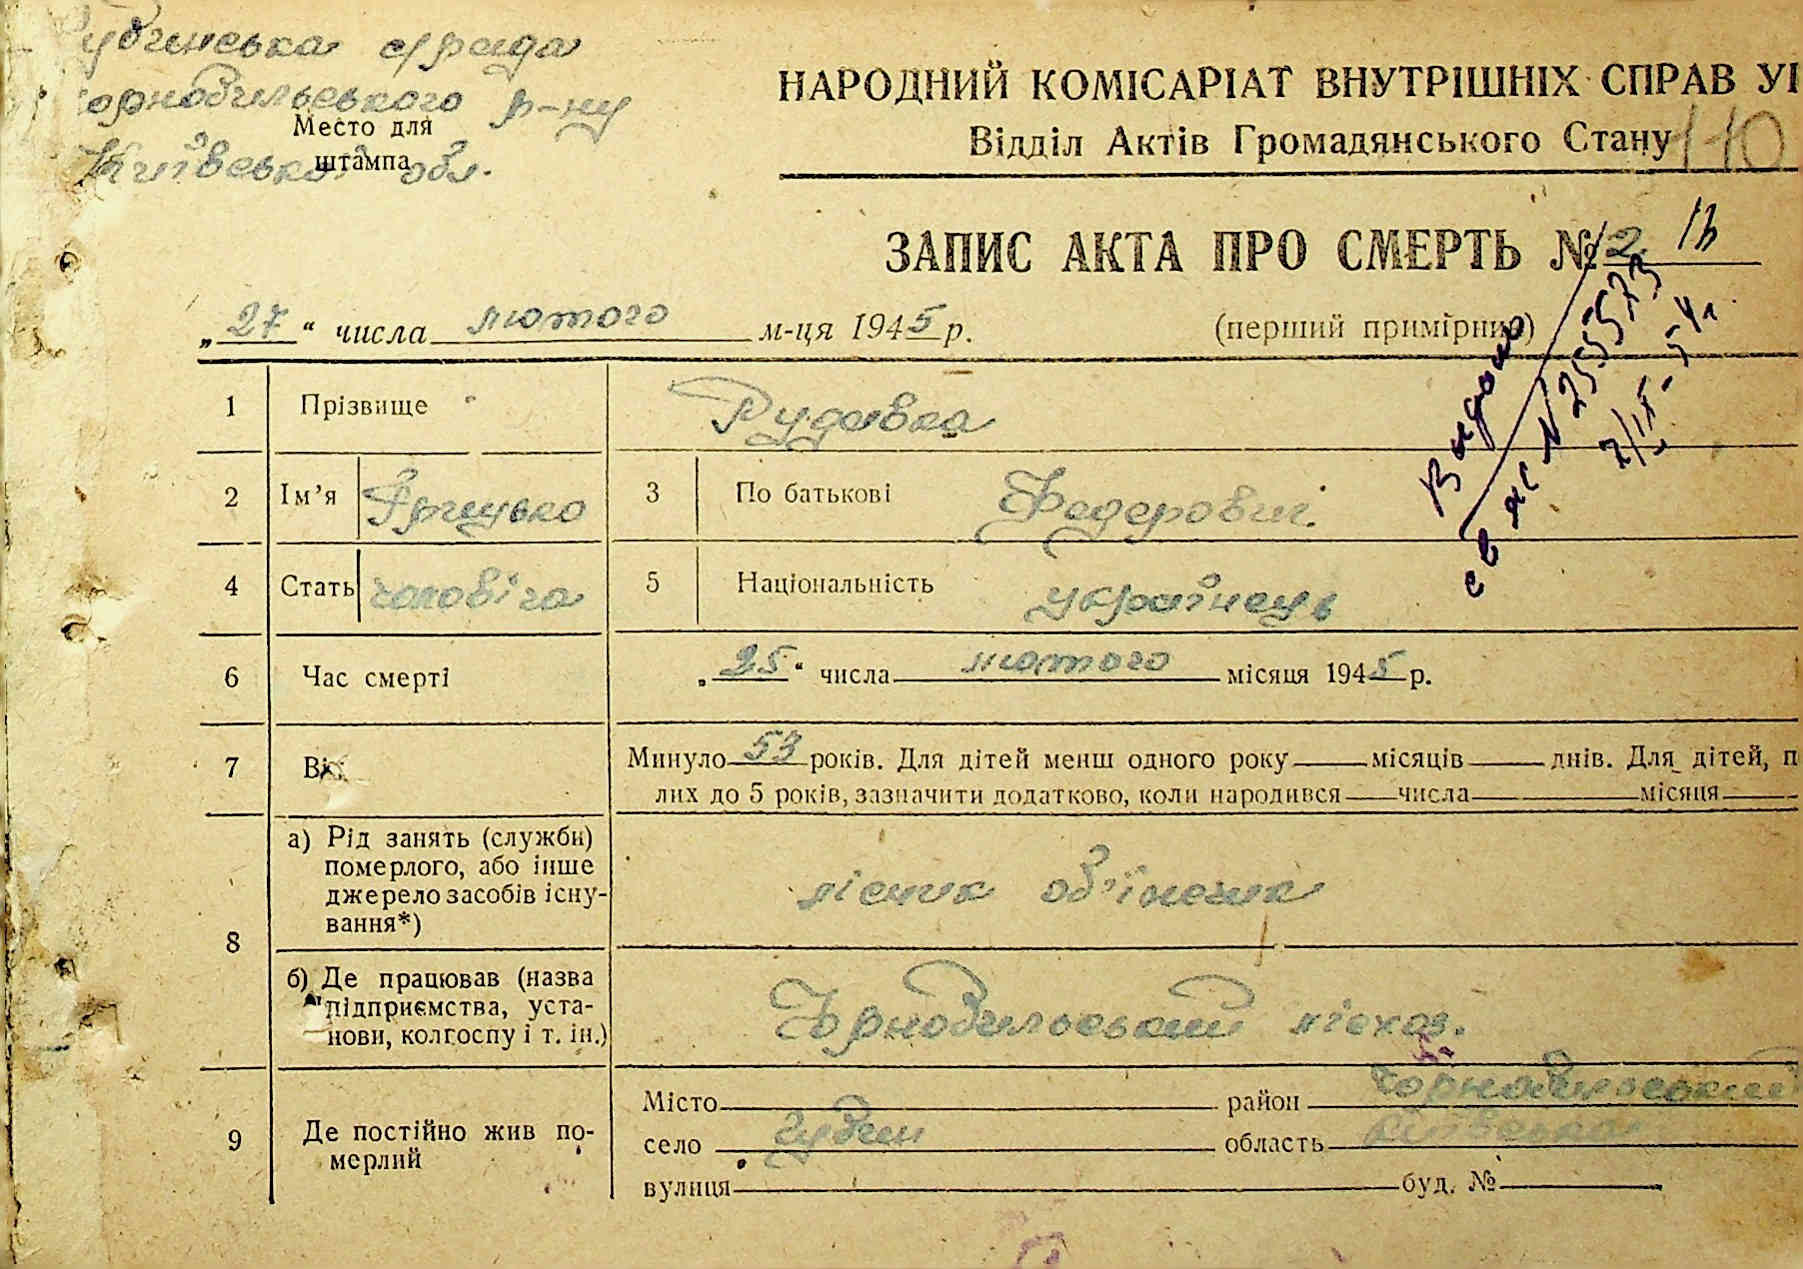 Губинська с/рада
Чорнобильського р-ну
Место для
штампа
Київської обл.
НАРОДНИЙ КОМІСАРІАТ ВНУТРІШНІХ СПРАВ
Відділ Актів Громадянського Стану
110
ЗАПИС АКТА ПРО СМЕРТЬ № 2
„27“ числа лютого м-ця 1945 р. (перший примірник)
Видано
№ 2555573
1 Прізвище Рудавка
2 Ім’я Грицько 3 По батькові Федерович
4 Стать чоловіча 5 Національність українець
6 Час смерті „25“ числа лютого місяця 1945 р.
7 Вік Минуло 53 років. Для дітей менш одного року місяців днів. Для дітей, п
лих до 5 років, зазначити додатково, коли народився числа місяця
8 а) Рід занять (служби)
померлого, або інше
джерело засобів існу-
вання*)
лісник об'їнечик
б) Де працював (назва
підприємства, уста-
нови, колгоспу і т. ін.)
Чорнобильський лісхоз.
9 Де постійно жив по-
мерлий
Місто район Чорнобильський
село Губин область Київська
вулиця буд. №